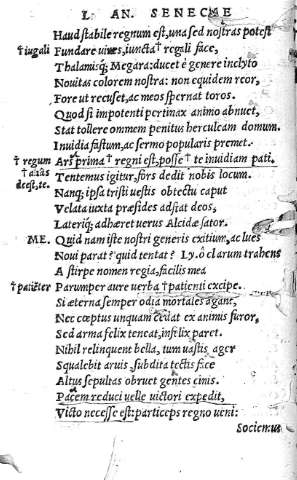 L. AN. SENECAE
Haud stabile regnum est, una sed nostras potest
† iugali Fundare uires, iuncta† regali face,
Thalamisq; Megara: ducet è genere inclyto
Nouitas colorem nostra: non equidem reor,
Fore ut recuset, ac meos spernat toros.
Quod si impotenti pertinax animo abnuet,
Stat tollere omnem penitus herculeam domum.
Inuidia factum, ac sermo popularis premet.
† regum Ars prima† regni est, posse† te inuidiam pati.
† aliâs Tentemus igitur, fors dedit nobis locum.
dest, te. Nanq; ipsa tristi uestis obtectu caput
Velata iuxta praesides adstat deos,
Lateriq; adhaeret uerus Alcidae sator.
ME. Quid nam iste nostri generis exitium, ac lues
Noui parat? quid tentat? Ly. ô clarum trahens
A stirpe nomen regia, facilis mea
† paciēter Parumper aure uerba †patienti excipe.
Si aeterna semper odia mortales agant,
Nec coeptus unquam cedat ex animis furor,
Sed arma felix teneat, infelix paret.
Nihil relinquent bella, tum uastis ager
Squalebit aruis, subdita tectis face
Altus sepultas obruet gentes cinis.
Pacem reduci uelle uictori expedit,
Victo necesse est: particeps regno ueni:
Sociemus